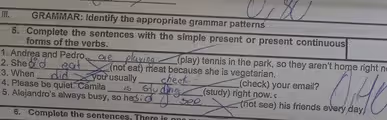 III. GRAMMAR: Identify the appropriate grammar patterns
5. Complete the sentences with the simple present or present continuous
forms of the verbs.
1. Andrea and Pedro are playing (play) tennis in the park, so they aren't home right n
2. She did eat (not eat) meat because she is vegetarian.
3. When did you usually check (check) your email?
4. Please be quiet. Camila is studying (study) right now.
5. Alejandro's always busy, so he did see (not see) his friends every day.
6. Complete the sentences. There is